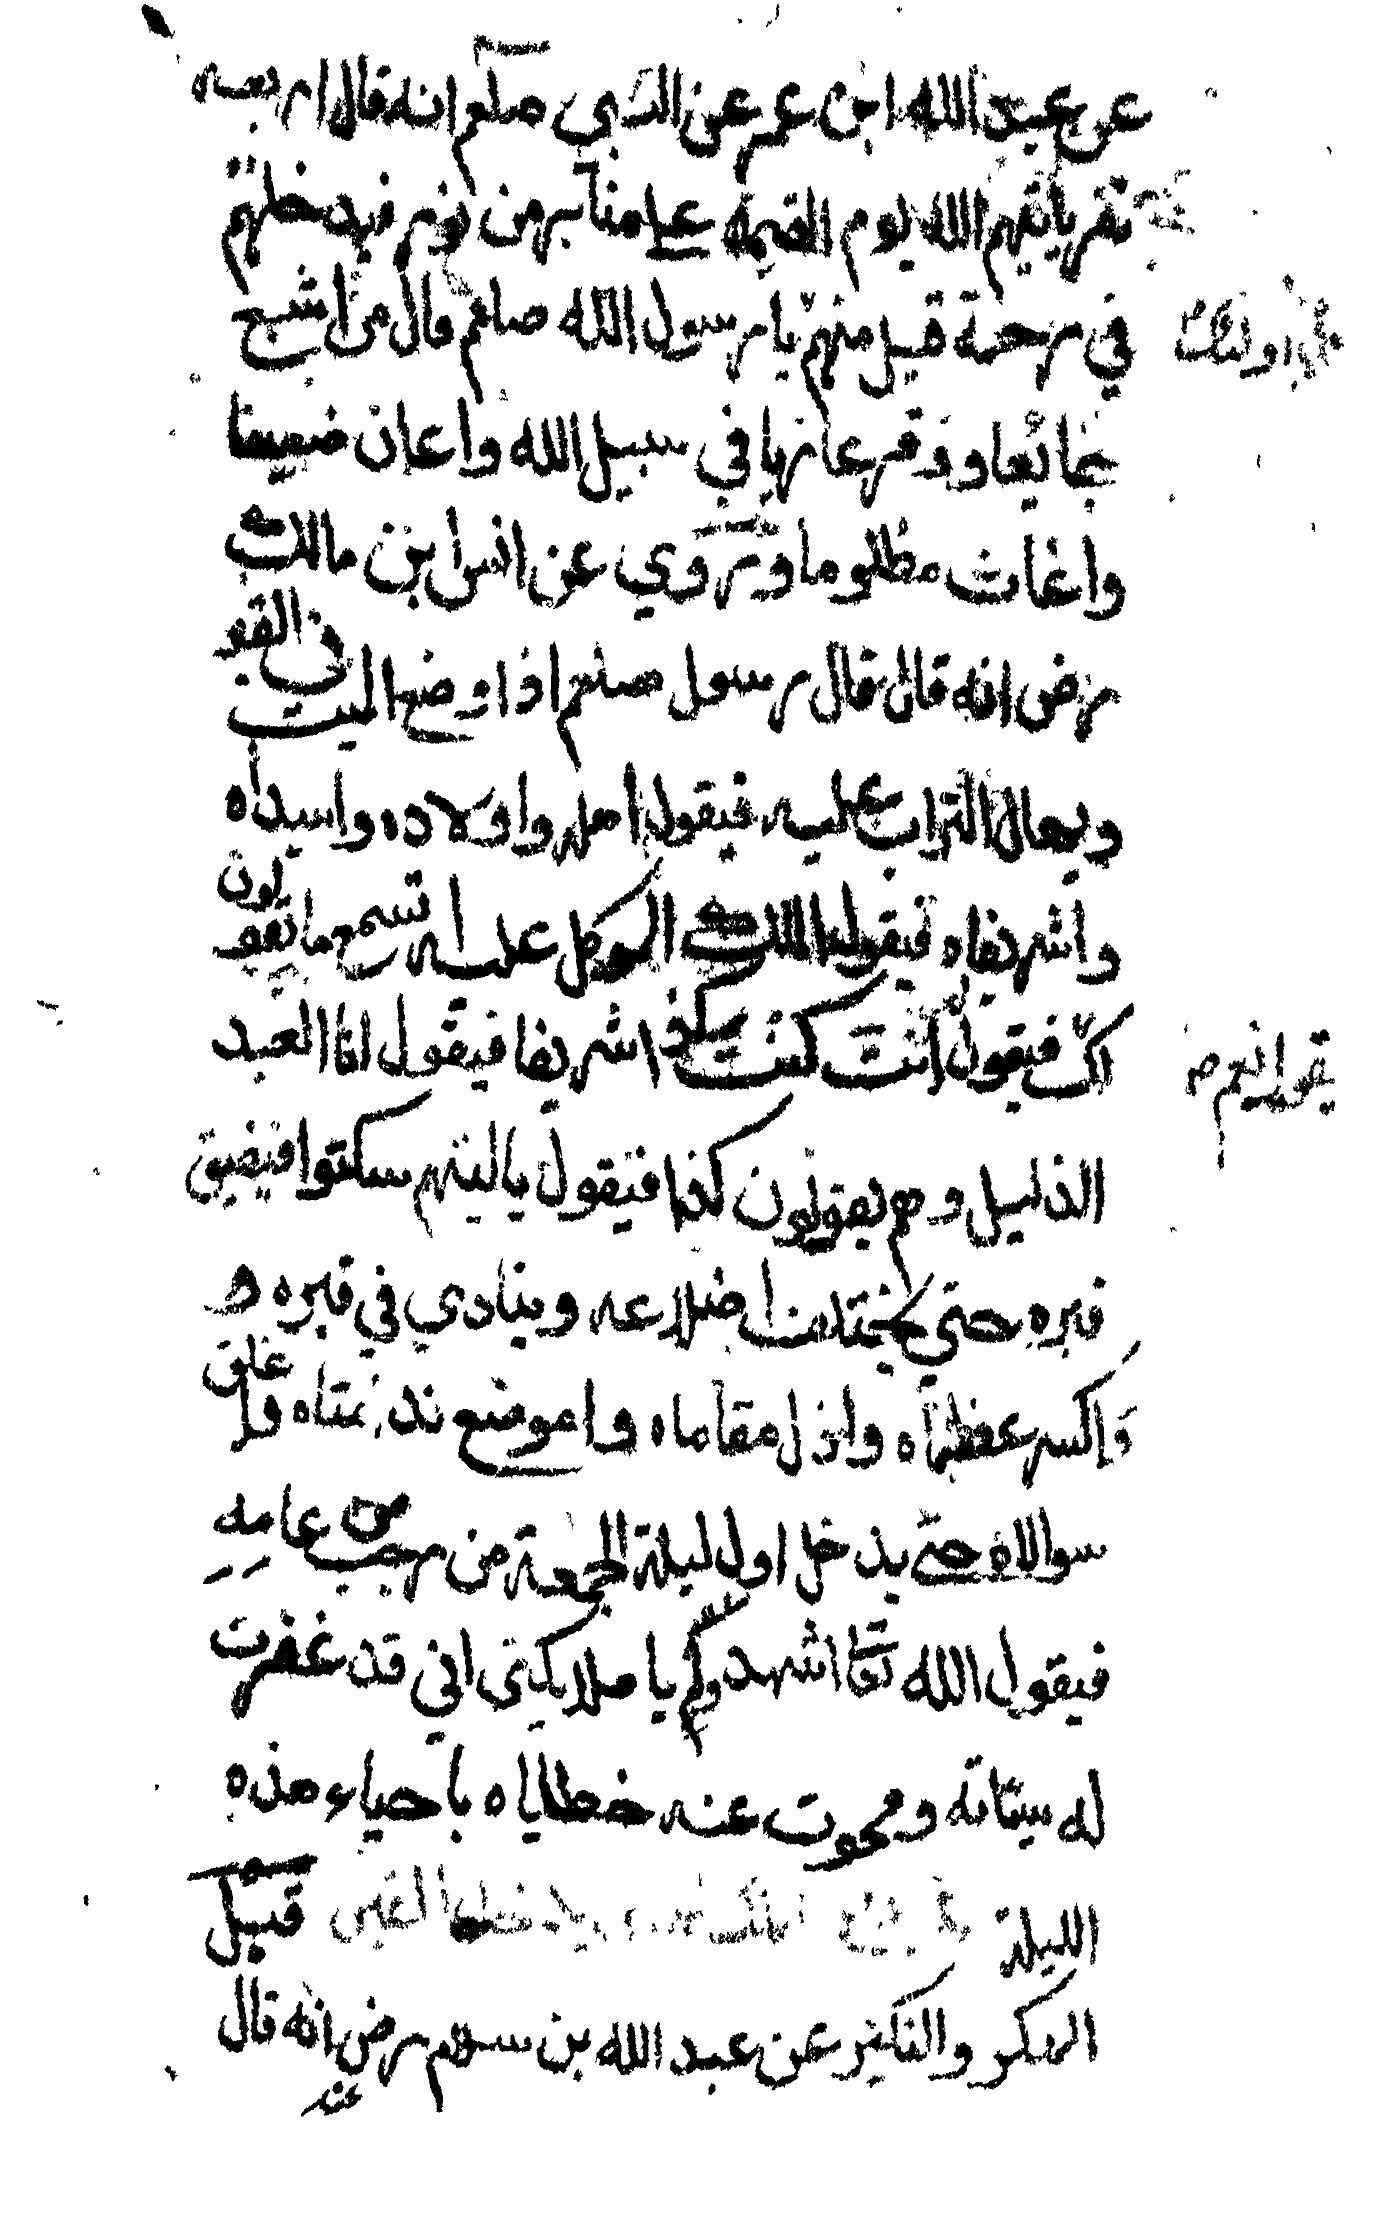 عن عبد الله ابن عمر عن النبي صلعم انه قال اربعه
نفر ياتيهم الله يوم القيمة على منابر من نور فيدخلهم
في رحمة قيل منهم يا رسول الله صلعم قال من اشبع
جايعا و وقر غازيا في سبيل الله واعان ضعيفا
واغاث مظلوما وروي عن انس ابن مالك
رض انه قال قال رسول صلعم اذا وضع الميت في القبو
ويهال التراب عليه فيقول اهله واولاده واسيداه
واشريفاه فيقول الملك الموكل عليه اتسمع ما يقولون
لك فيقول أنت كنت شريفا فيقول انا العبد
يقول نعم م
الذليل وهم يقولون كذا فيقول ياليتهم سكتوا فيضيق
قبره حتى يختلف اضلاعه وينادي في قبره و
واكسر عظماه واذل مقاماه واموضع ندامتاه وا غلق
سوالاه حتى يدخل اول ليلة الجمعة من رجب من عامه
فيقول الله تعا اشهدوكم يا ملايكتي اني قد غفرت
له سيئاته ومحوت عنه خطاياه باحياء هذه
الليلة قيل
المنكر والنكير عن عبد الله بن سهم رض انه قال
عنه